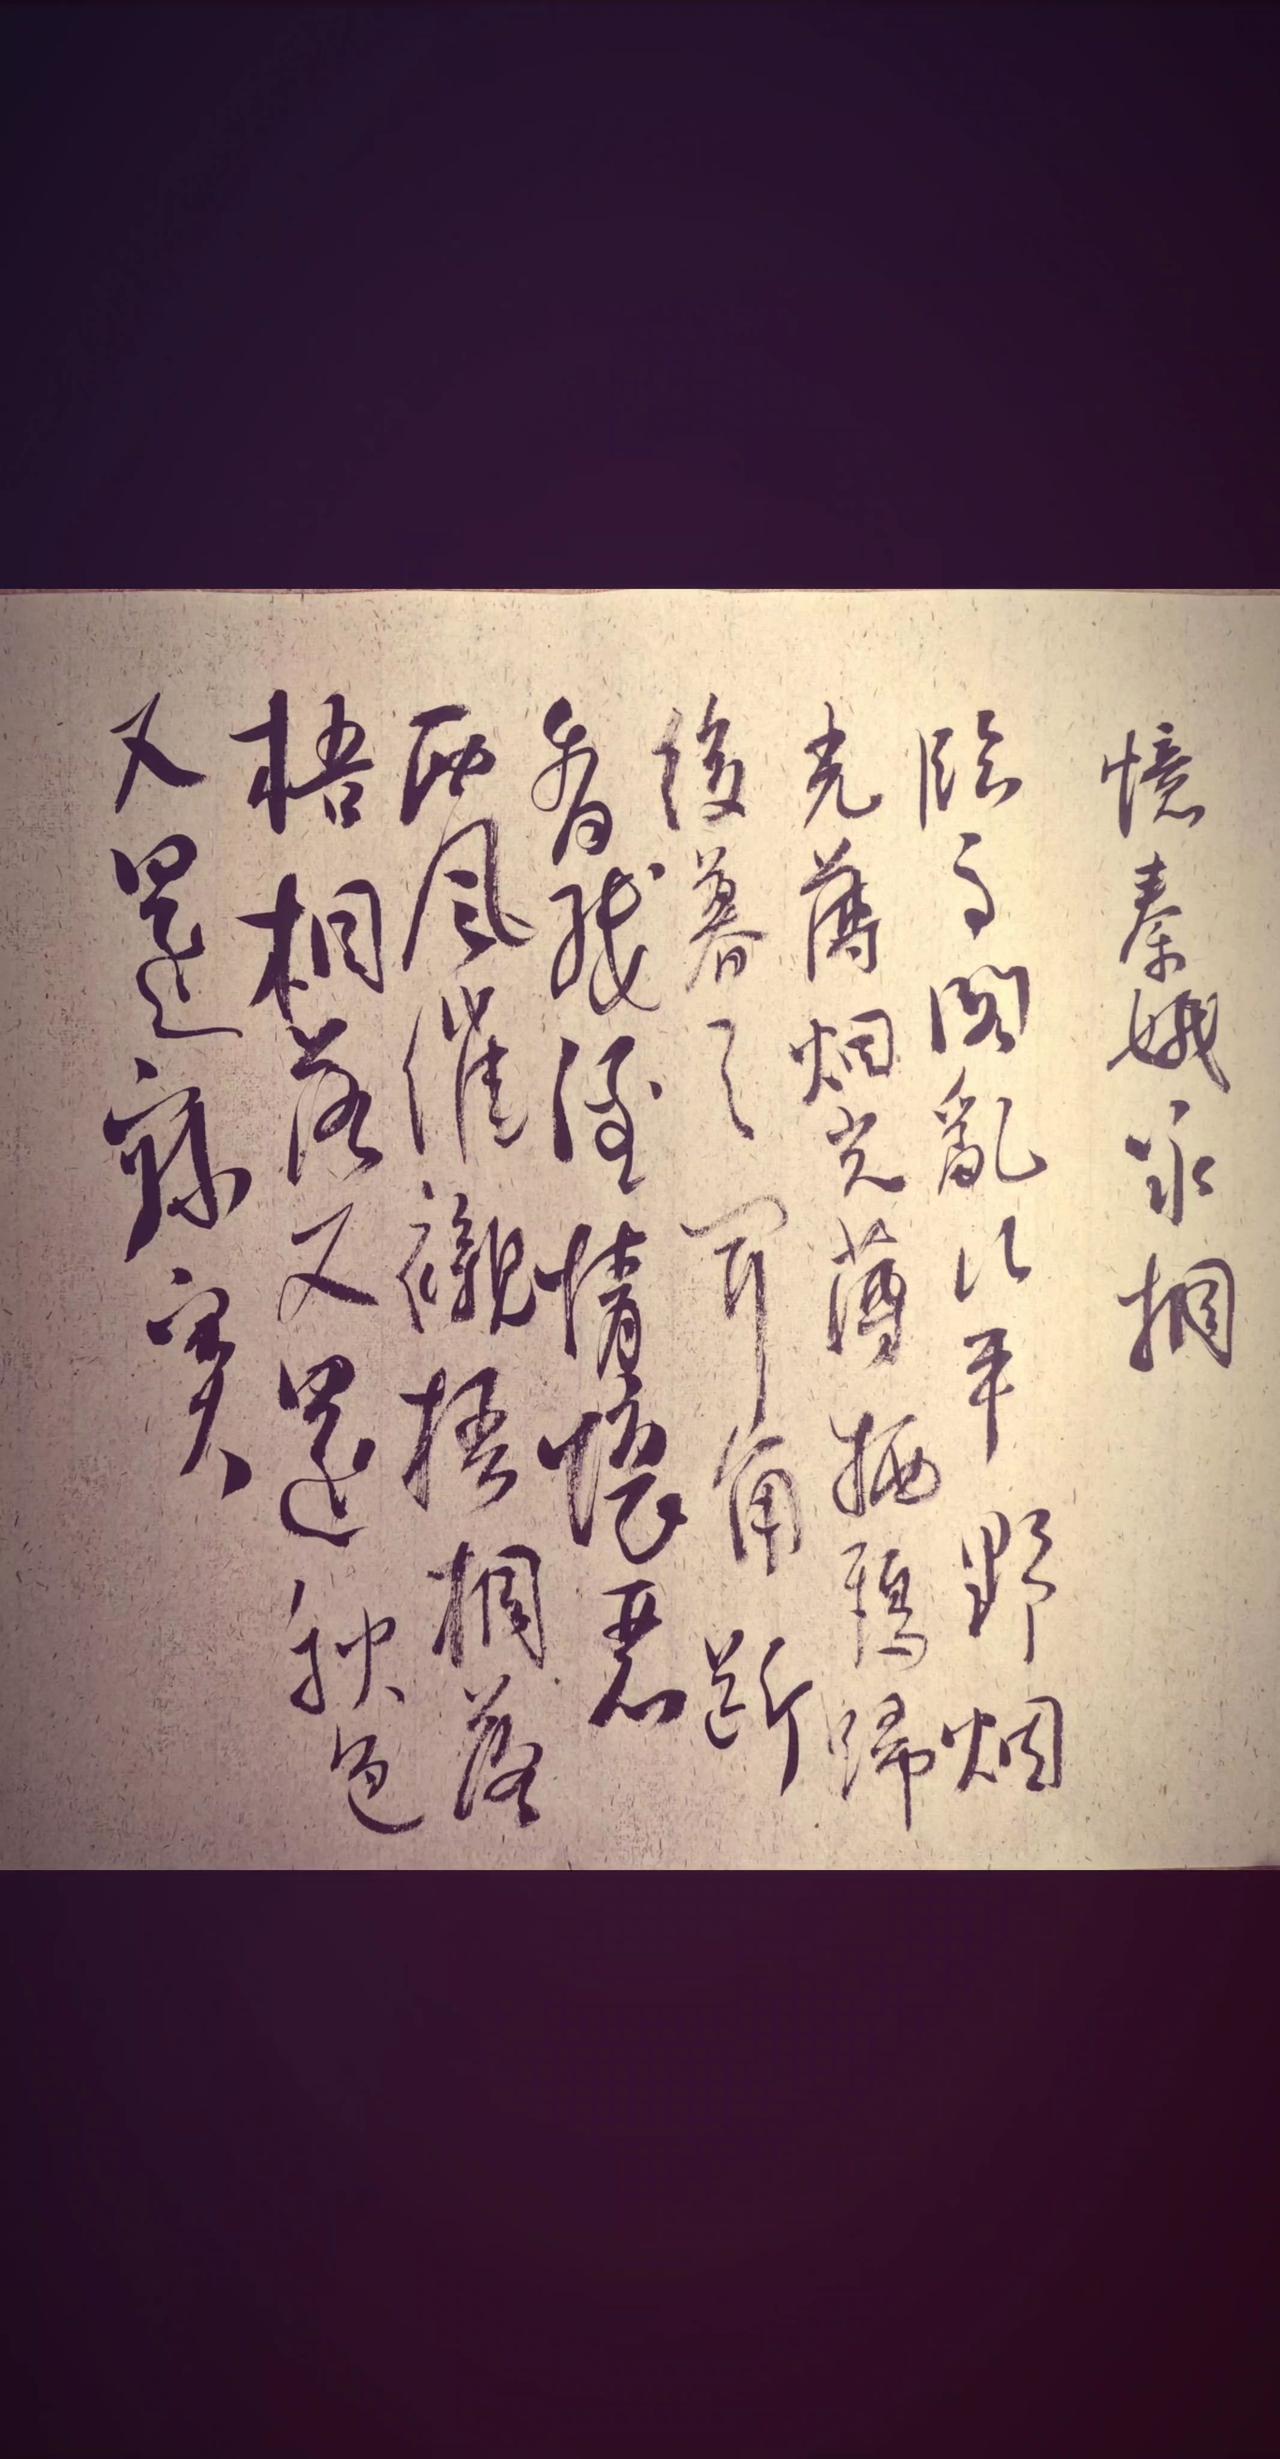 憶秦娥詠桐
臨高閣亂山平野烟
光薄烟光薄栖鴉歸
後暮天聞角斷
香殘酒情懷惡
西風催襯梧桐落
梧桐落又還秋色
又還寂寞